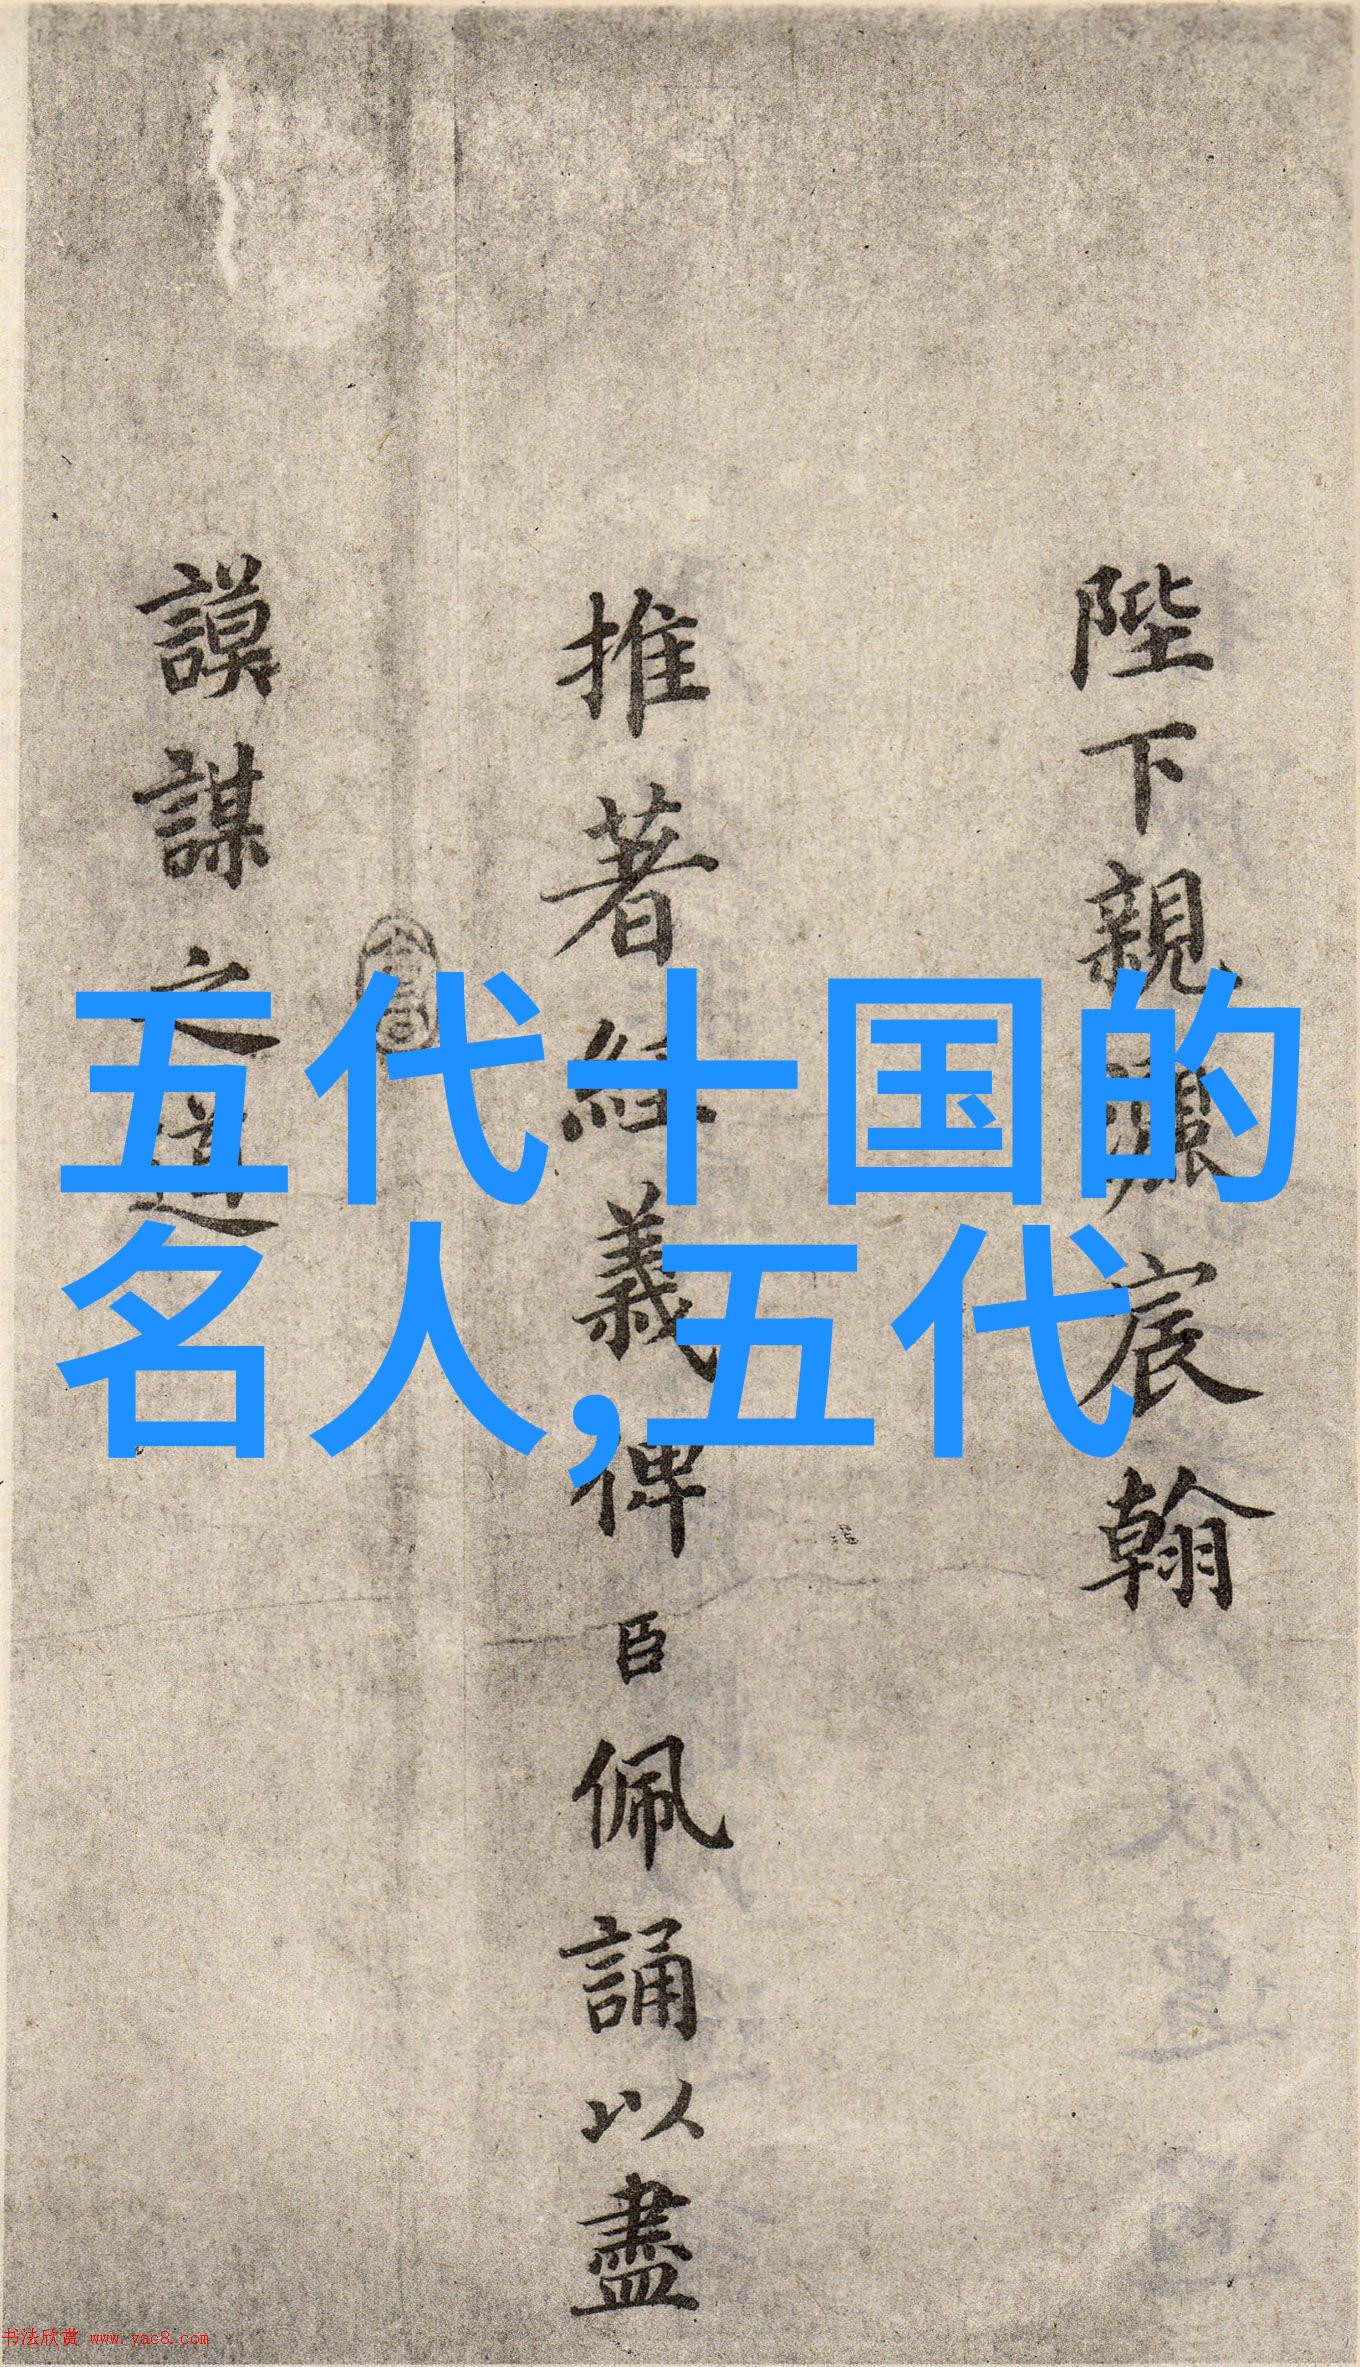 陛下親灑宸翰
推著經義俾臣佩誦以盡
謨謀之道
五代十国的
名人,五代
书法欣赏 www.yac8.com